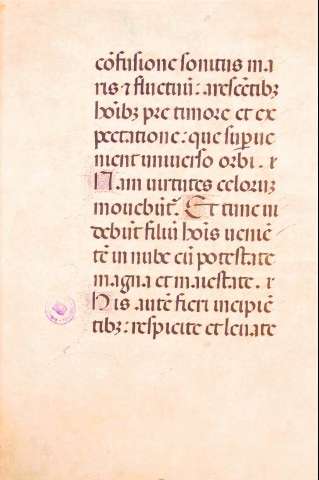 cōfusione sonitus ma
ris ⁊ fluctuū: arescētibꝫ
hoībꝫ pre timore et ex
pectatione: que supue
nient universo orbi. r
Nam virtutes celoruꝫ
movebūt᷑. Et tunc vi
debūt filiū hoīs veniē
tē in nube cū potestate
magna et maiestate. r
His autē fieri incipiē
tibꝫ: respicite et levate